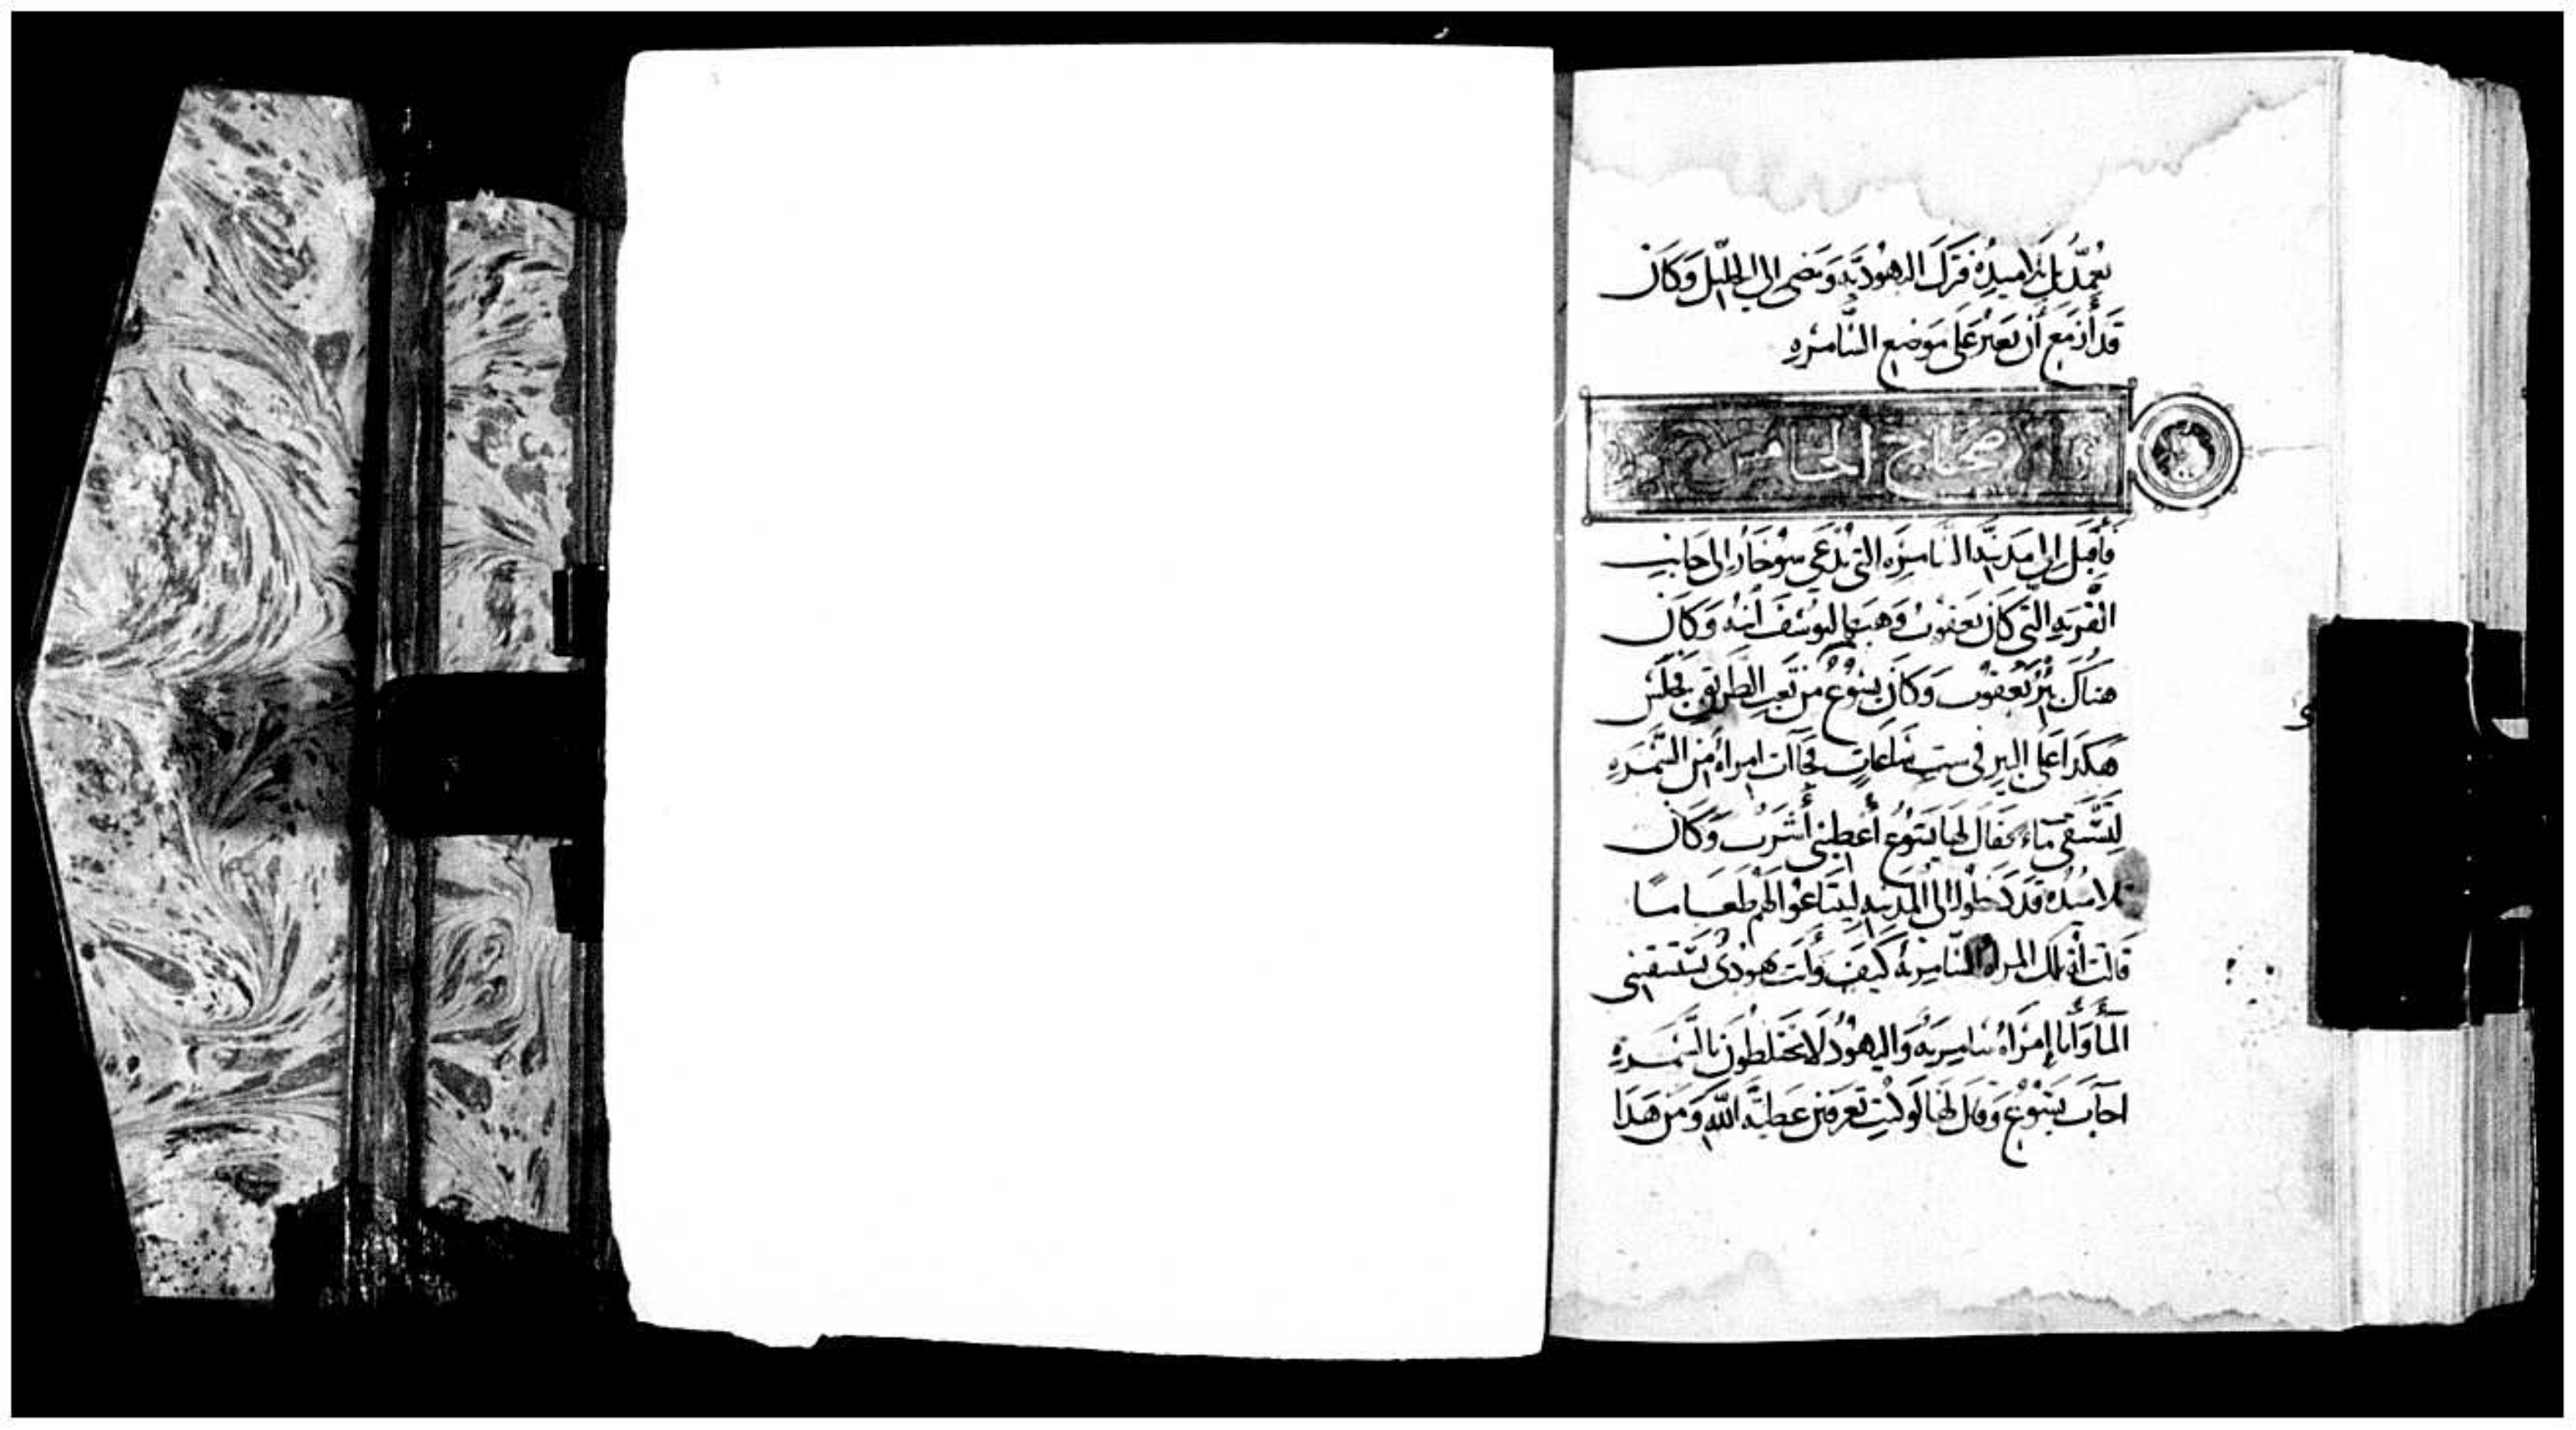 يُعمّد بل تلاميذه فترك اليهوديه ومضى إلى الجليل وكان
قد أزمع أن يعبر على موضع السّامره
الاصحاح الخامس
فأقبل إلى مدينة السامره التي تدعى سوخار إلى جانب
القريه التي كان يعقوب وهبها ليوسف ابنه وكان
هناك بير يعقوب وكان يسوع من تعب الطريق فجلس
هكذا على البير في ست ساعات فجاات امراه من السّمره
لتستقي ماء فقال لها يسوع أعطيني أشرب وكان
تلاميذه قد دخلوا الى المدينه ليبتاعوا لهم طعاما
قالت له تلك المراه السامريه كيف وأنت يهودي تستسقيني
الماَ وأنا إمراه سامريه واليهود لا يختلطون بالسّمره
اجاب يسوع وقال لها لو كنتِ تعرفين عطية الله ومن هذا